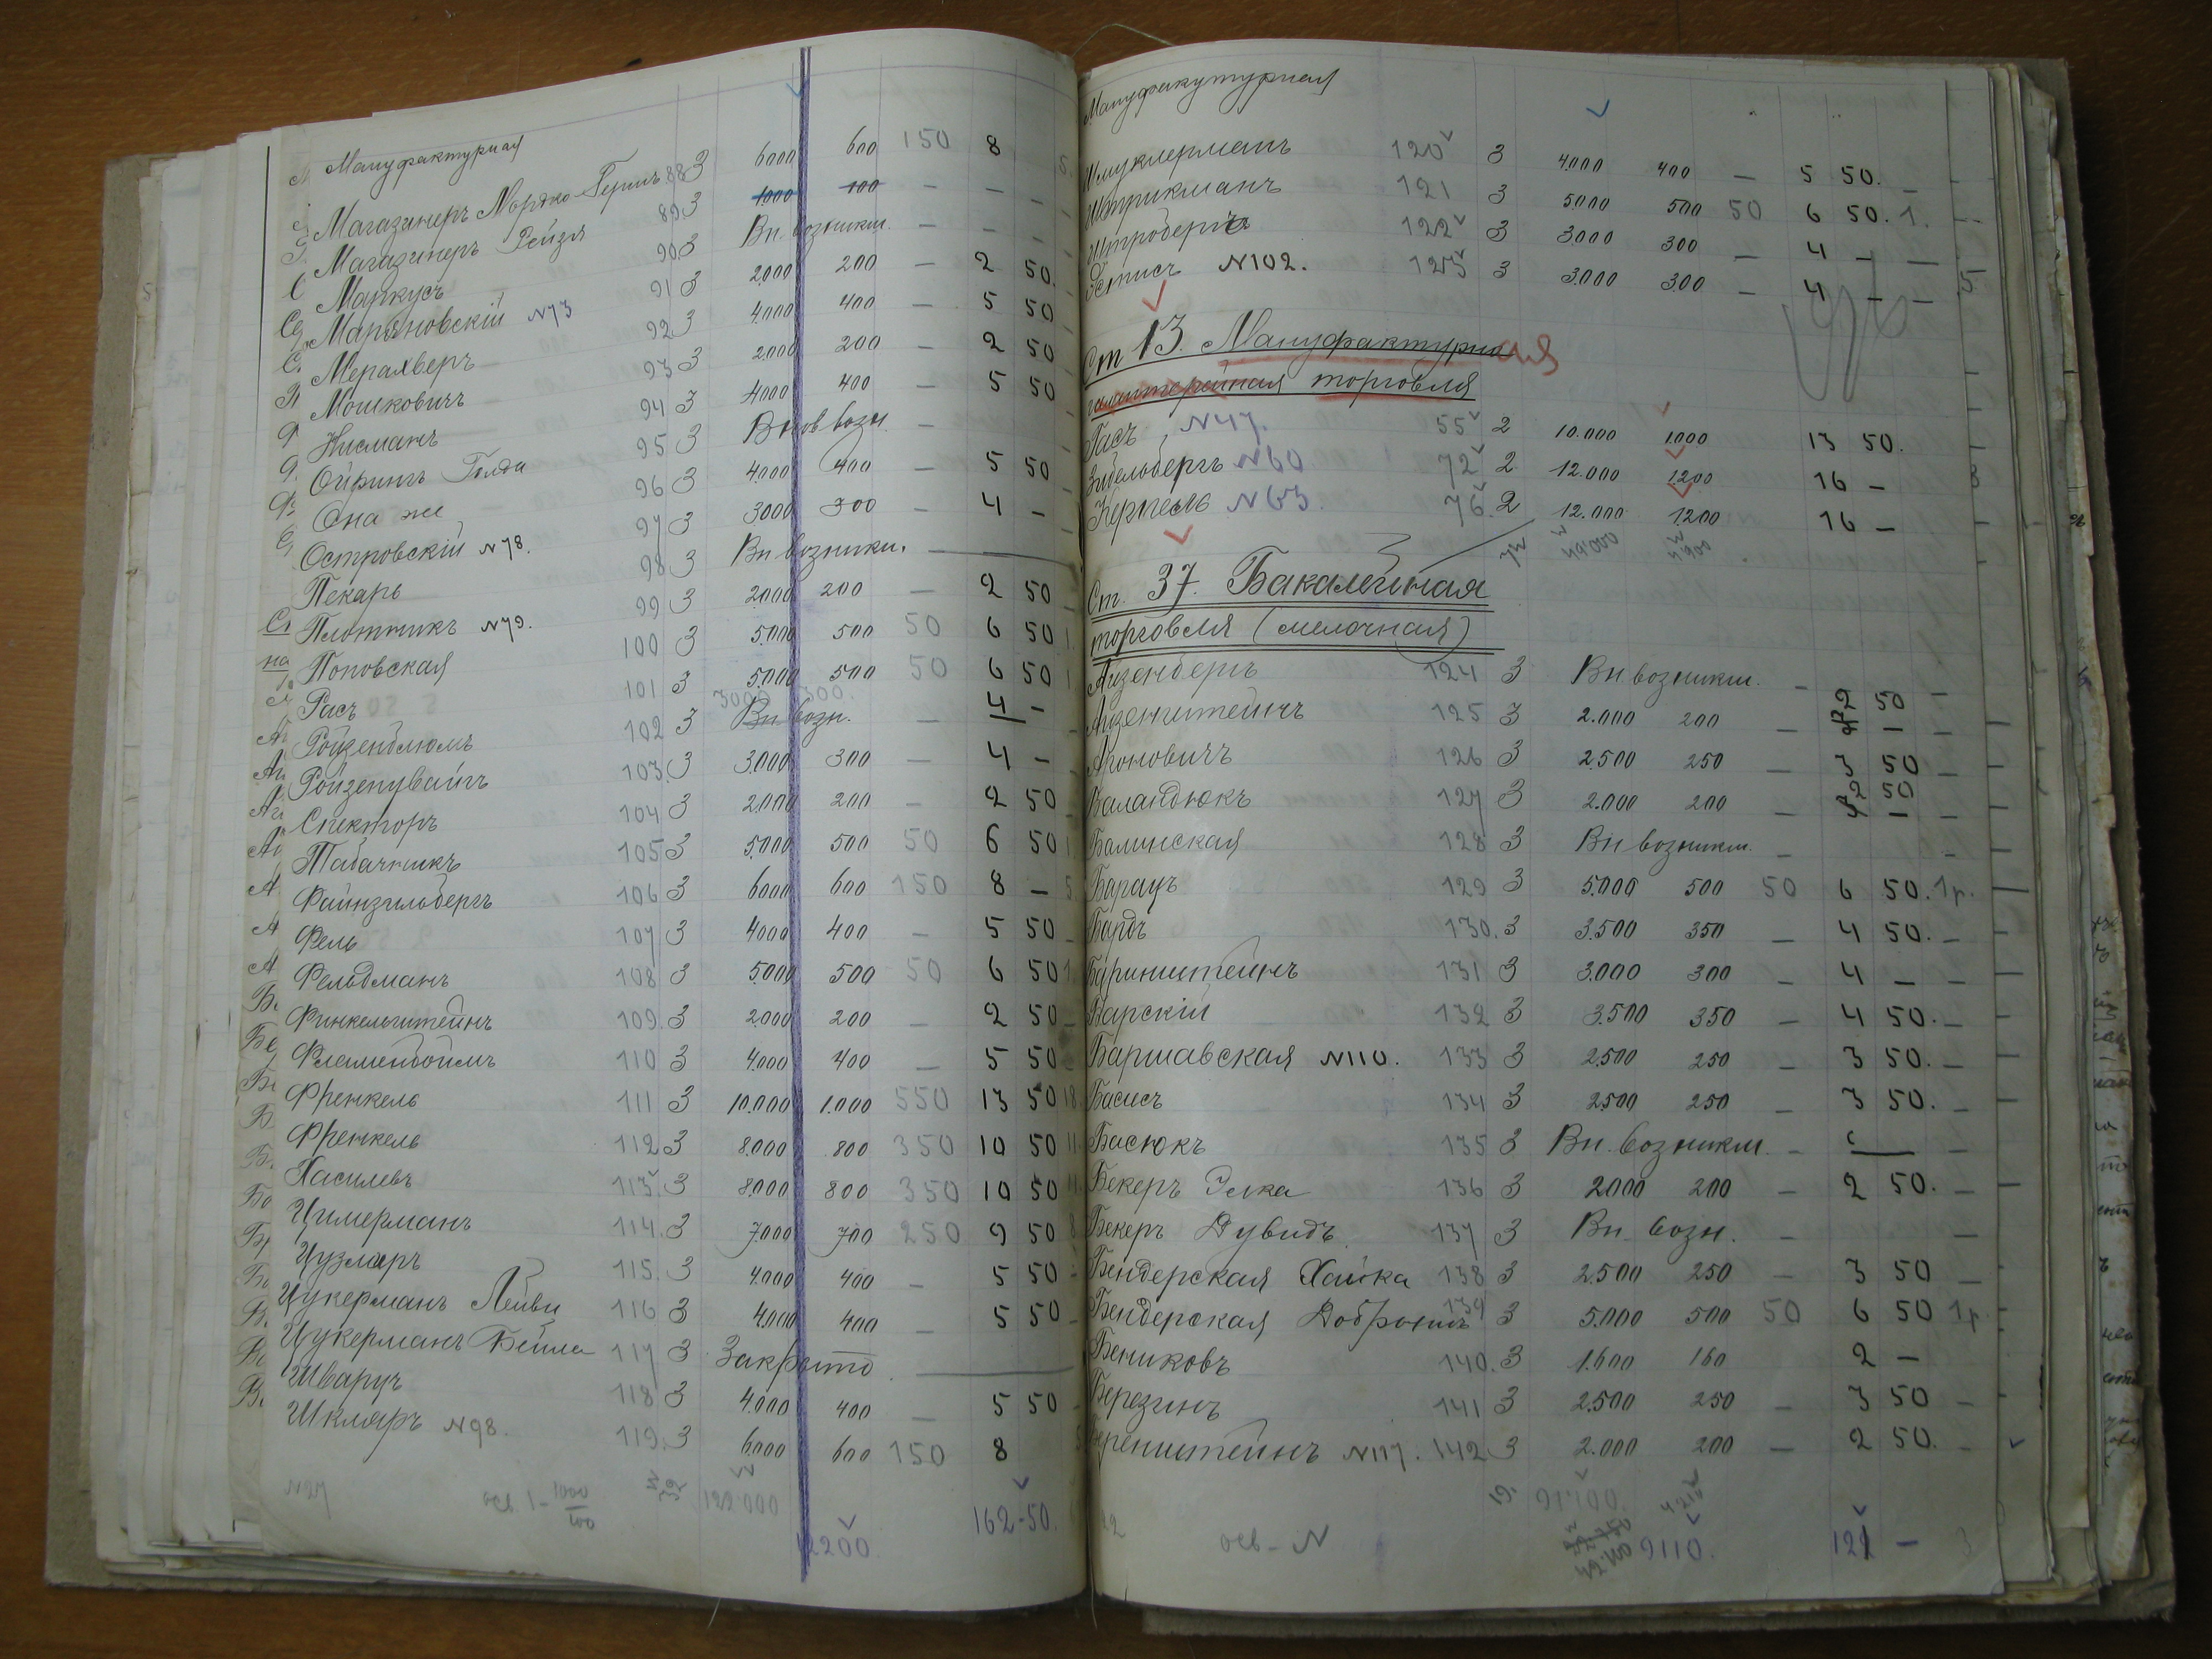 Мануфактурная
Магазинеръ Мордко-Гершъ 88 3 6000 600 150 8
Магазинеръ Рейзя 89 3 1000 100 — —
Маркусъ 90 3 Вн. возникш. — —
Марьяновскій N73 91 3 2000 200 — 2 50
Мерахверъ 92 3 4000 400 — 5 50
Мошковичъ 93 3 2000 200 — 2 50
Нисманъ 94 3 4000 400 — 5 50
Ойрингъ Голда 95 3 Вновь возн. —
Она же 96 3 4000 400 — 5 50
Островскій N78. 97 3 3000 300 — 4 —
Пекарь 98 3 Вн возникш. —
Плотникъ N79. 99 3 2000 200 — 2 50
Поповская 100 3 5000 500 50 6 50
Расъ 101 3 5000 500 50 6 50
Ройзенблюмъ 102 3 3000 300. Вн возн. — 4 —
Ройзенцвайгъ 103. 3 3000 300 — 4 —
Спекторъ 104 3 2000 200 — 2 50
Табачникъ 105 3 5000 500 50 6 50
Файнзильбергъ 106 3 6000 600 150 8 —
Фель 107 3 4000 400 — 5 50
Фельдманъ 108 3 5000 500 50 6 50
Финкельштейнъ 109. 3 2000 200 — 2 50
Фламенбоймъ 110 3 4000 400 — 5 50
Френкель 111 3 10.000 1.000 550 13 50
Френкель 112 3 8000 800 350 10 50
Хасилевъ 113. 3 8000 800 350 10 50
Цимерманъ 114. 3 7000 700 250 9 50
Цузмаръ 115. 3 4000 400 — 5 50
Цукерманъ Лейви 116 3 4000 400 — 5 50
Цукерманъ Бейла 117 3 Закрыто
Шварцъ 118 3 4000 400 — 5 50
Шкляръ N98. 119. 3 6000 600 150 8
N27 осв. 1 - 1000 100 122.000
12200 162-50.
Мануфакутурная
Шмуклерманъ 120 3 4000 400 — 5 50. —
Штрикманъ 121 3 5000 500 50 6 50. 1.
Штробергъ 122 3 3000 300 — 4 — —
Эстисъ N102. 123 3 3000 300 — 4 — —
Ст 13. Мануфактурная
галантерейная торговля
Гасъ N47. 55 2 10.000 1.000 13 50.
Зибельбергъ N60 72 2 12.000 1.200 16 —
Керпель N63. 76. 2 12.000 1.200 16 —
Ст. 37. Бакалейная
торговля (мелочная)
Айзенбергъ 124 3 Вн. возникш. —
Айзенштейнъ 125 3 2.000 200 — 2 50 —
Ароновичъ 126 3 2500 250 — 3 50 —
Баландюкъ 127 3 2.000 200 — 2 50 —
Балинская 128 3 Вн возникш. — —
Барацъ 129 3 5000 500 50 6 50. 1р.
Бардъ 130. 3 3.500 350 — 4 50. —
Бариштейнъ 131 3 3.000 300 — 4 — —
Барскій 132 3 3500 350 — 4 50. —
Баршавская N110. 133 3 2500 250 — 3 50. —
Басисъ 134 3 2500 250 — 3 50. —
Басюкъ 135 3 Вн. возникш. — —
Бекеръ Элка 136 3 2000 200 — 2 50. —
Бекеръ Дувидъ. 137 3 Вн. возн. — —
Бендерская Хайка 138 3 2.500 250 — 3 50 —
Бендерская Добрышъ 139 3 5.000 500 50 6 50 1р.
Бениковъ 140. 3 1.600 160 2 —
Березинъ 141 3 2500 250 — 3 50 —
Беренштейнъ N117. 142 3 2.000 200 — 2 50. —
22 осв - N 91.100.
9110. 121 —